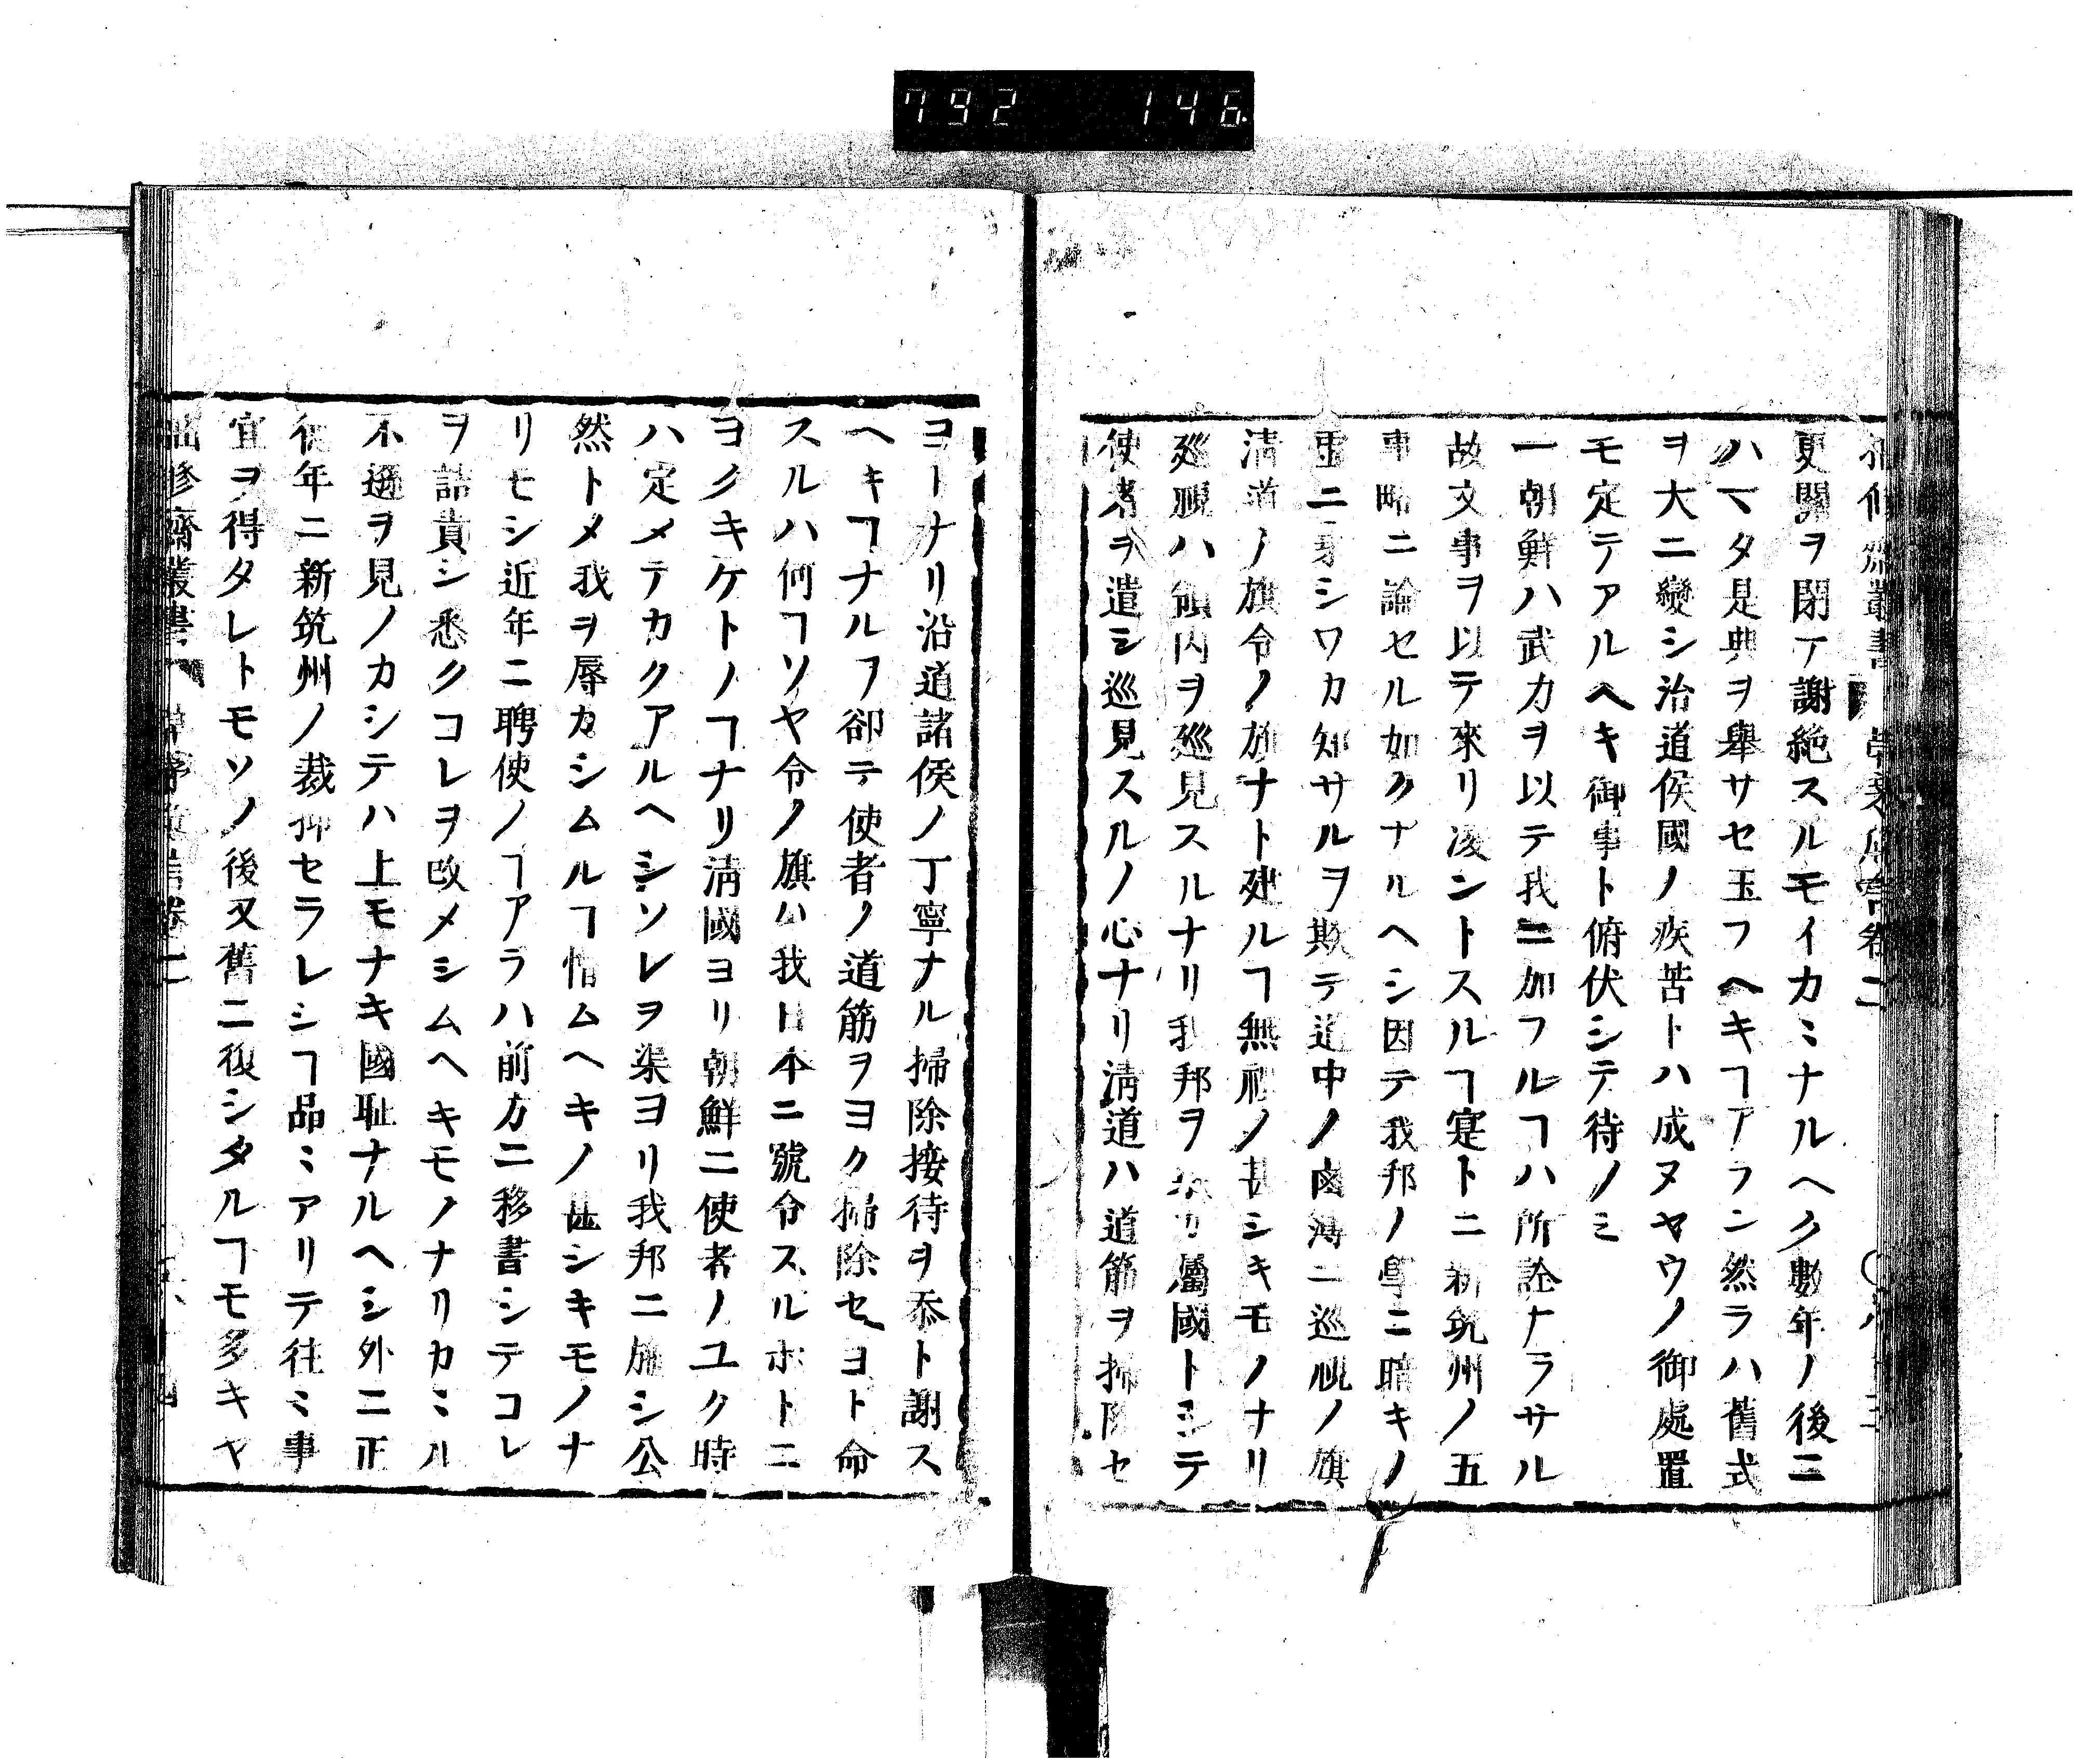 792 146
更關ヲ閉テ謝絶スルモイカミナルヘク數年ノ後ニ
ハマタ是典ヲ舉サセ玉フヘキヿアラン然ラハ舊式
ヲ大ニ變シ治道侯國ノ疾苦トハ成ヌヤウノ御處置
モ定テアルヘキ御事ト俯伏シテ待ノミ
一朝鮮ハ武力ヲ以テ我ニ加フルヿハ所詮ナラサル
故文事ヲ以テ來リ凌ントスルヿ寔トニ新筑州ノ五
事略ニ論セル如クナルヘシ因テ我邦ノ學ニ暗キノ
虚ニ乗シワカ知サルヲ欺テ道中ノ鹵簿ニ巡視ノ旗
淸道ノ旗令ノ旗ナト建ルヿ無禮ノ甚シキモノナリ
廵視ハ領内ヲ廵見スルナリ我邦ヲ カ屬國トシテ
使者ヲ遣シ巡見スルノ心ナリ淸道ハ道筋ヲ掃除セ
ヨトナリ沿道諸侯ノ丁寧ナル掃除接待ヲ忝ト謝ス
ヘキヿナルヲ卻テ使者ノ道筋ヲヨク掃除セヨト命
スルハ何ヿソヤ令ノ旗ハ我日本ニ號令スルホトニ
ヨクキケトノヿナリ淸國ヨリ朝鮮ニ使者ノユク時
ハ定メテカクアルヘシソレヲ渠ヨリ我邦ニ施シ公
然トメ我ヲ辱カシムルヿ惜ムヘキノ甚シキモノナ
リモシ近年ニ聘使ノヿアラハ前方ニ移書シテコレ
ヲ詰責シ悉クコレヲ改メシムヘキモノナリカミル
不遜ヲ見ノカシテハ上モナキ國恥ナルヘシ外ニ正
徳年ニ新筑州ノ裁抑セラレシヿ品ミアリテ往ミ事
宜ヲ得タレトモソノ後又舊ニ復シタルヿモ多キヤ
修齋叢書 卷二